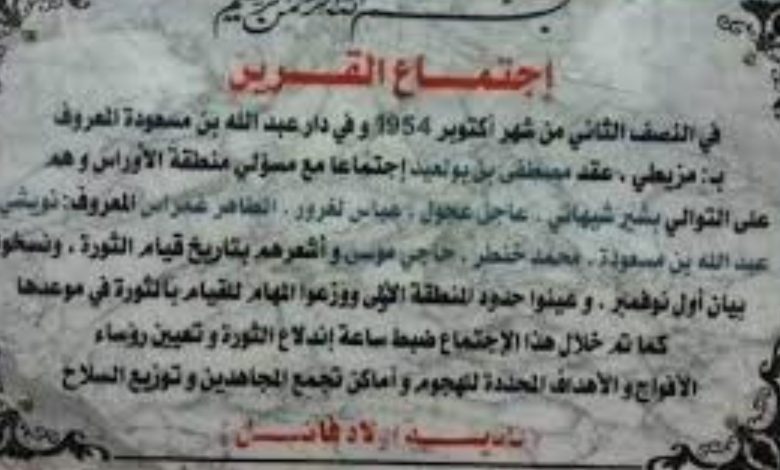 بسم الله الرحمن الرحيم
إجتمــاع القــريــن
في النصف الثاني من شهر أكتوبر 1954 و في دار عبد الله بن مسعودة المعروف
بـ: مزيطي ، عقد مصطفى بن بولعيد إجتماعا مع مسؤلي منطقة الأوراس و هم
على التوالي بشير شيهاني . عاجل عجول ، عباس لغرور . الطاهر غمراس المعروف: نويشي
عبد الله بن مسعودة . محمد خنطر . حاجي موسى و أشعرهم بتاريخ قيام الثورة ، ونسخوا
بيان أول نوفمبر . و عينوا حدود المنطقة الأولى ووزعوا المهام للقيام بالثورة في موعدها
كما تم خلال هذا الإجتماع ضبط ساعة إندلاع الثورة و تعيين رؤساء
الافواج و الأهداف المحددة للهجوم و أماكن تجمع المجاهدين و توزيع السلاح
اولاد فاضــل